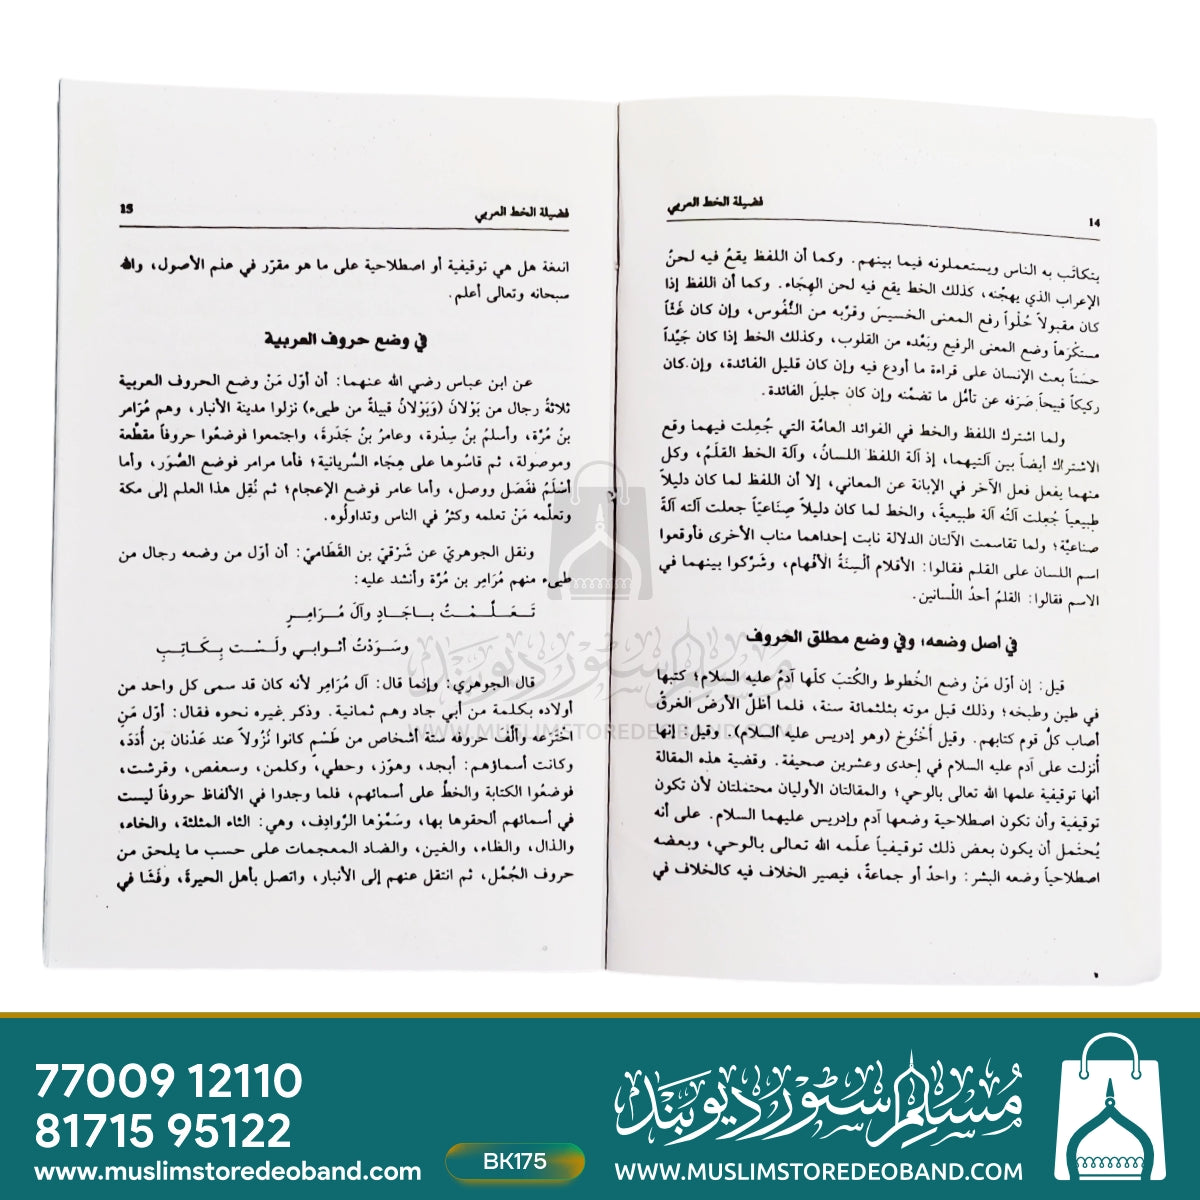 فضيلة الخط العربي
14
يتكاتَب به الناس ويستعملونه فيما بينهم. وكما أن اللفظ يقعُ فيه لحنُ
الإعراب الذي يهجّنه، كذلك الخط يقع فيه لحن الهِجَاء. وكما أن اللفظ إذا
كان مقبولاً حُلْواً رفع المعنى الخسيسَ وقرّبه من النُّفُوس، وإن كان غَثّاً
مستكرَهاً وضع المعنى الرفيع وبَعَّده من القلوب، وكذلك الخط إذا كان جَيِّداً
حسَناً بعث الإنسان على قراءة ما أودع فيه وإن كان قليل الفائدة، وإن كان
ركيكاً قبيحاً صَرَفه عن تأمُّل ما تضمَّنه وإن كان جليلَ الفائدة.
ولما اشترك اللفظ والخط في الفوائد العامّة التي جُعِلت فيهما وقع
الاشتراك أيضاً بين آلتيهما، إذ آلة اللفظ اللسانُ، وآلة الخط القلَمُ، وكل
منهما يفعل فعل الآخر في الإبانة عن المعاني، إلا أن اللفظ لما كان دليلاً
طبيعياً جُعِلت آلتُه آلة طبيعيةً، والخط لما كان دليلاً صِنَاعيّاً جعلت آلته آلةً
صناعيّة؛ ولما تقاسمت الآلتان الدلالة نابت إحداهما مناب الأخرى فأوقعوا
اسم اللسان على القلم فقالوا: الأقلام ألْسِنَةُ الأفْهام، وشَرَّكوا بينهما في
الاسم فقالوا: القلمُ أحدُ اللَّسانين.
في أصل وضعه؛ وفي وضع مطلق الحروف
قيل: إن أوّل مَنْ وضع الخُطوط والكُتبَ كلَّها آدمُ عليه السلام؛ كتبها
في طين وطبخه؛ وذلك قبل موته بثلثمائة سنة، فلما أظلّ الأرضَ الغرقُ
أصاب كلُّ قوم كتابهم. وقيل أَخْنُوخ (وهو إدريس عليه السلام). وقيل: إنها
أُنزلت على آدم عليه السلام في إحدى وعشرين صحيفة. وقضية هذه المقالة
أنها توقيفية علمها الله تعالى بالوحي؛ والمقالتان الأوليان محتملتان لأن تكون
توقيفية وأن تكون اصطلاحية وضعها آدم وإدريس عليهما السلام. على أنه
يُحتَمل أن يكون بعض ذلك توقيفياً علّمه الله تعالى بالوحي، وبعضه
اصطلاحياً وضعه البشر: واحدٌ أو جماعةٌ، فيصير الخلاف فيه كالخلاف في
فضيلة الخط العربي
15
اللغة هل هي توقيفية أو اصطلاحية على ما هو مقرّر في علم الأصول، والله
سبحانه وتعالى أعلم.
في وضع حروف العربية
عن ابن عباس رضي الله عنهما: أن أوّل مَنْ وضع الحروف العربية
ثلاثةُ رجال من بَوْلانَ (وَبَوْلانُ قبيلةٌ من طيىء) نزلوا مدينة الأنبار، وهم مُرَامر
بنُ مُرَّة، وأسلمُ بنُ سِدْرة، وعامرُ بنُ جَدَرةَ، واجتمعوا فوضعُوا حروفاً مقطَّعة
وموصولة، ثم قاسُوها على هِجَاء السُّريانية؛ فأما مرامر فوضع الصُّوَر، وأما
أسْلَمُ ففَصَل ووصل، وأما عامر فوضع الإعجام؛ ثم نُقِل هذا العلم إلى مكة
وتعلَّمه مَنْ تعلمه وكثرُ في الناس وتداولُوه.
ونقل الجوهريّ عن شَرْقيّ بن القَطَاميّ: أن أوّل من وضعه رجال من
طيىء منهم مُرَامِر بن مُرَّة وأنشد عليه:
تَعَلَّمْتُ بـاجَادٍ وآلَ مُرَامِـرٍ
وسَرَدْتُ أثْوابي ولَسْت بِكَاتِبِ
قال الجوهري: وإنما قال: آل مُرَامِر لأنه كان قد سمى كل واحد من
أولاده بكلمة من أبي جاد وهم ثمانية. وذكر غيره نحوه فقال: أوّل مَنِ
اخْتَرَعه وألَّفَ حروفه ستة أشخاص من طَسْمٍ كانوا نُزُولاً عند عَدْنان بن أُدَدَ،
وكانت أسماؤهم: أبجد، وهوّز، وحطي، وكلمن، وسعفص، وقرشت،
فوضعُوا الكتابة والخطَّ على أسمائهم، فلما وجدوا في الألفاظ حروفاً ليست
في أسمائهم ألحقوها بها، وسَمَّوْها الرَّوادِف، وهي: الثاء المثلثة، والخاء،
والذال، والظاء، والغين، والضاد المعجمات على حسب ما يلحق من
حروف الجُمَّل، ثم انتقل عنهم إلى الأنبار، واتصل بأهل الحيرة، وفَشَا في
مسلم سٹور دیوبند
WWW.MUSLIMSTOREDEOBAND.COM
77009 12110
81715 95122
www.muslimstoredeoband.com
BK175
مُسلم سٹور دیوبند
WWW.MUSLIMSTOREDEOBAND.COM